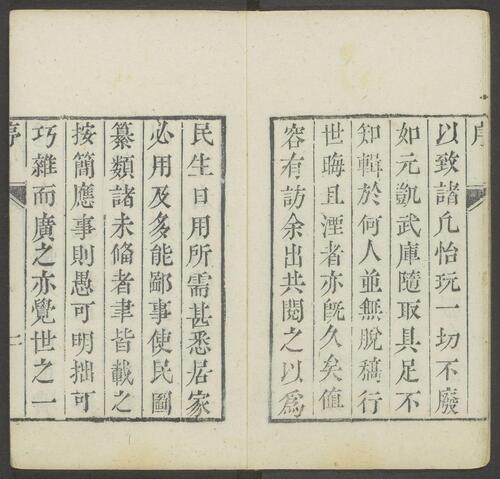 序
以致諸凢怡玩一切不廢
如元凱武庫隨取具足不
知輯於何人並無脫稿行
世晦且湮者亦旣久矣值
容有訪余出共閱之以爲
民生日用所需甚悉居家
必用及多能鄙事使民圖
纂類諸未備者聿皆載之
按簡應事則愚可明拙可
巧雜而廣之亦覺世之一
序